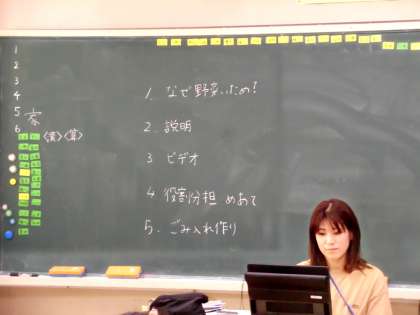 1
2
3
4
5 家
6
〈漢〉〈算〉
1. なぜ野菜いため?
2. 説明
3 ビデオ
4 役割分担 めあて
5. ごみ入れ作り